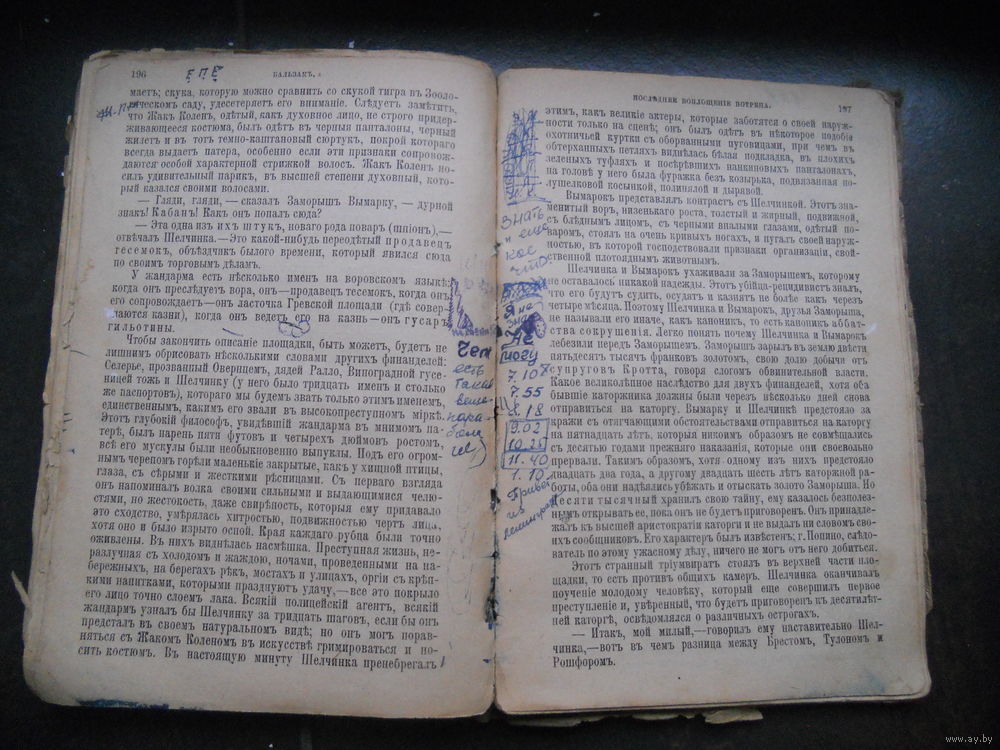 196
Е П Е
БАЛЬЗАКЪ.
маетъ; скука, которую можно сравнить со скукой тигра въ Зооло-
гическомъ саду, удесетеряетъ его вниманіе. Слѣдуетъ замѣтить,
что Жакъ Коленъ, одѣтый, какъ духовное лицо, не строго придер-
живающееся костюма, былъ одѣтъ въ черныя панталоны, черный
жилетъ и въ тотъ темно-каштановый сюртукъ, покрой котораго
всегда выдаетъ патера, особенно если эти признаки сопровож-
даются особой характерной стрижкой волосъ. Жакъ Коленъ но-
силъ удивительный парикъ, въ высшей степени духовный, кото-
рый казался своими волосами.
— Гляди, гляди, — сказалъ Заморышъ Вымарку, — дурной
знакъ! Кабанъ! Какъ онъ попалъ сюда?
— Эта одна изъ ихъ штукъ, новаго рода поваръ (шпіонъ),—
отвѣчалъ Шелчинка.—Это какой-нибудь переодѣтый продавецъ
тесемокъ, объѣздчикъ былого времени, который явился сюда
по своимъ торговымъ дѣламъ.
У жандарма есть нѣсколько именъ на воровскомъ языкѣ:
когда онъ преслѣдуетъ вора, онъ—продавецъ тесемокъ, когда онъ
его сопровождаетъ—онъ ласточка Гревской площади (гдѣ совер-
шаются казни), когда онъ ведетъ его на казнь—онъ гусаръ
гильотины.
Чтобы закончить описаніе площадки, быть можетъ, будетъ не
лишнимъ обрисовать нѣсколькими словами другихъ финанделей:
Селерье, прозванный Овернцемъ, дядей Ралло, Виноградной гусе-
ницей тожь и Шелчинку (у него было тридцать именъ и столько
же паспортовъ), котораго мы будемъ звать только этимъ именемъ,
единственнымъ, какимъ его звали въ высокопреступномъ міркѣ.
Этотъ глубокій философъ, увидѣвшій жандарма въ мнимомъ па-
терѣ, былъ парень пяти футовъ и четырехъ дюймовъ ростомъ,
всѣ его мускулы были необыкновенно выпуклы. Подъ его огром-
нымъ черепомъ горѣли маленькіе закрытые, какъ у хищной птицы,
глаза, съ сѣрыми и жесткими рѣсницами. Съ перваго взгляда
онъ напоминалъ волка своими сильными и выдающимися челю-
стями, но жестокость, даже свирѣпость, которыя ему придавало
это сходство, умѣрялась хитростью, подвижностью чертъ лица,
хотя оно и было изрыто оспой. Края каждаго рубца были точно
оживлены. Въ нихъ виднѣлась насмѣшка. Преступная жизнь, не-
разлучная съ холодомъ и жаждою, ночами, проведенными на на-
бережныхъ, на берегахъ рѣкъ, мостахъ и улицахъ, оргіи съ крѣп-
кими напитками, которыми празднуютъ удачу,—все это покрыло
его лицо точно слоемъ лака. Всякій полицейскій агентъ, всякій
жандармъ узналъ бы Шелчинку за тридцать шаговъ, если бы онъ
предсталъ въ своемъ натуральномъ видѣ; но онъ могъ порав-
няться съ Жакомъ Коленомъ въ искусствѣ гримироваться и но-
сить костюмъ. Въ настоящую минуту Шелчинка пренебрегалъ
есть
такая
ПОСЛѢДНЕЕ ВОПЛОЩЕНІЕ ВОТРЕНА.
197
этимъ, какъ великіе актеры, которые заботятся о своей наруж-
ности только на сценѣ; онъ былъ одѣтъ въ нѣкоторое подобіе
охотничьей куртки съ оборванными пуговицами, при чемъ въ
обтерханныхъ петляхъ виднѣлась бѣлая подкладка, въ плохихъ
зеленыхъ туфляхъ и посѣрѣвшихъ нанкиновыхъ панталонахъ,
на головѣ у него была фуражка безъ козырька, подвязанная по-
лушелковой косынкой, полинялой и дырявой.
Вымарокъ представлялъ контрастъ съ Шелчинкой. Этотъ зна-
менитый воръ, низенькаго роста, толстый и жирный, подвижной,
съ блѣднымъ лицомъ, съ черными впалыми глазами, одѣтый по-
варомъ, стоялъ на очень кривыхъ ногахъ, и пугалъ своей наруж-
ностью, въ которой господствовали признаки организаціи, свой-
ственной плотояднымъ животнымъ.
Шелчинка и Вымарокъ ухаживали за Заморышемъ, которому
не оставалось никакой надежды. Этотъ убійца-рецидивистъ зналъ,
что его будутъ судить, осудятъ и казнятъ не болѣе какъ черезъ
четыре мѣсяца. Поэтому Шелчинка и Вымарокъ, друзья Заморыша,
не называли его иначе, какъ каноникъ, то есть каноникъ аббат-
ства сокрушенія. Легко понять почему Шелчинка и Вымарокъ
лебезили передъ Заморышемъ. Заморышъ зарылъ въ землю двѣсти
пятьдесятъ тысячъ франковъ золотомъ, свою долю добычи отъ
супруговъ Кротта, говоря слогомъ обвинительной власти.
Какое великолѣпное наслѣдство для двухъ финанделей, хотя оба
бывшіе каторжника должны были черезъ нѣсколько дней снова
отправиться на каторгу. Вымарку и Шелчинкѣ предстояло за
кражи съ отягчающими обстоятельствами отправиться на каторгу
на пятнадцать лѣтъ, которыя никоимъ образомъ не совмѣщались
съ десятью годами прежняго наказанія, которые они своевольно
прервали. Такимъ образомъ, хотя одному изъ нихъ предстояло
двадцать два года, а другому двадцать шесть лѣтъ каторжной ра-
боты, оба они надѣялись убѣжать и отыскать золото Заморыша. Но
десятитысячный хранилъ свою тайну, ему казалось безполез-
нымъ открывать ее, пока онъ не будетъ приговоренъ. Онъ принадле-
жалъ къ высшей аристократіи каторги и не выдалъ ни словомъ сво-
ихъ сообщниковъ. Его характеръ былъ извѣстенъ; г. Попино, слѣдо-
ватель по этому ужасному дѣлу, ничего не могъ отъ него добиться.
Этотъ странный тріумвиратъ стоялъ въ верхней части пло-
щадки, то есть противъ общихъ камеръ. Шелчинка оканчивалъ
поученіе молодому человѣку, который еще совершилъ первое
преступленіе и, увѣренный, что будетъ приговоренъ къ десятилѣт-
ней каторгѣ, освѣдомлялся о различныхъ острогахъ.
— Итакъ, мой милый,—говорилъ ему наставительно Шел-
чинка,—вотъ въ чемъ разница между Брестомъ, Тулономъ и
Рошфоромъ.
знать
и еще
кое
что
Я не
могу
7.10
7.55
8.18
9.02
10.25
11.40
1.10
Привет
из
www.ay.by